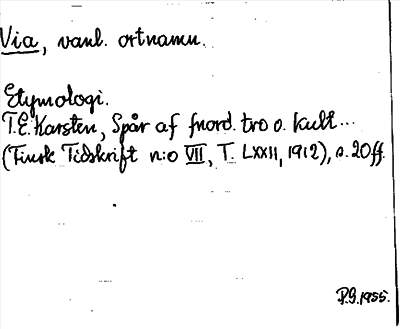 Via, vanl. ortnamn.
Etymologi.
T.E. Karsten, Spår af fnord. tro o. kult...
(Finsk Tidskrift n:o VII, T. LXXII, 1912), s. 20 ff.
P.G. 1955.